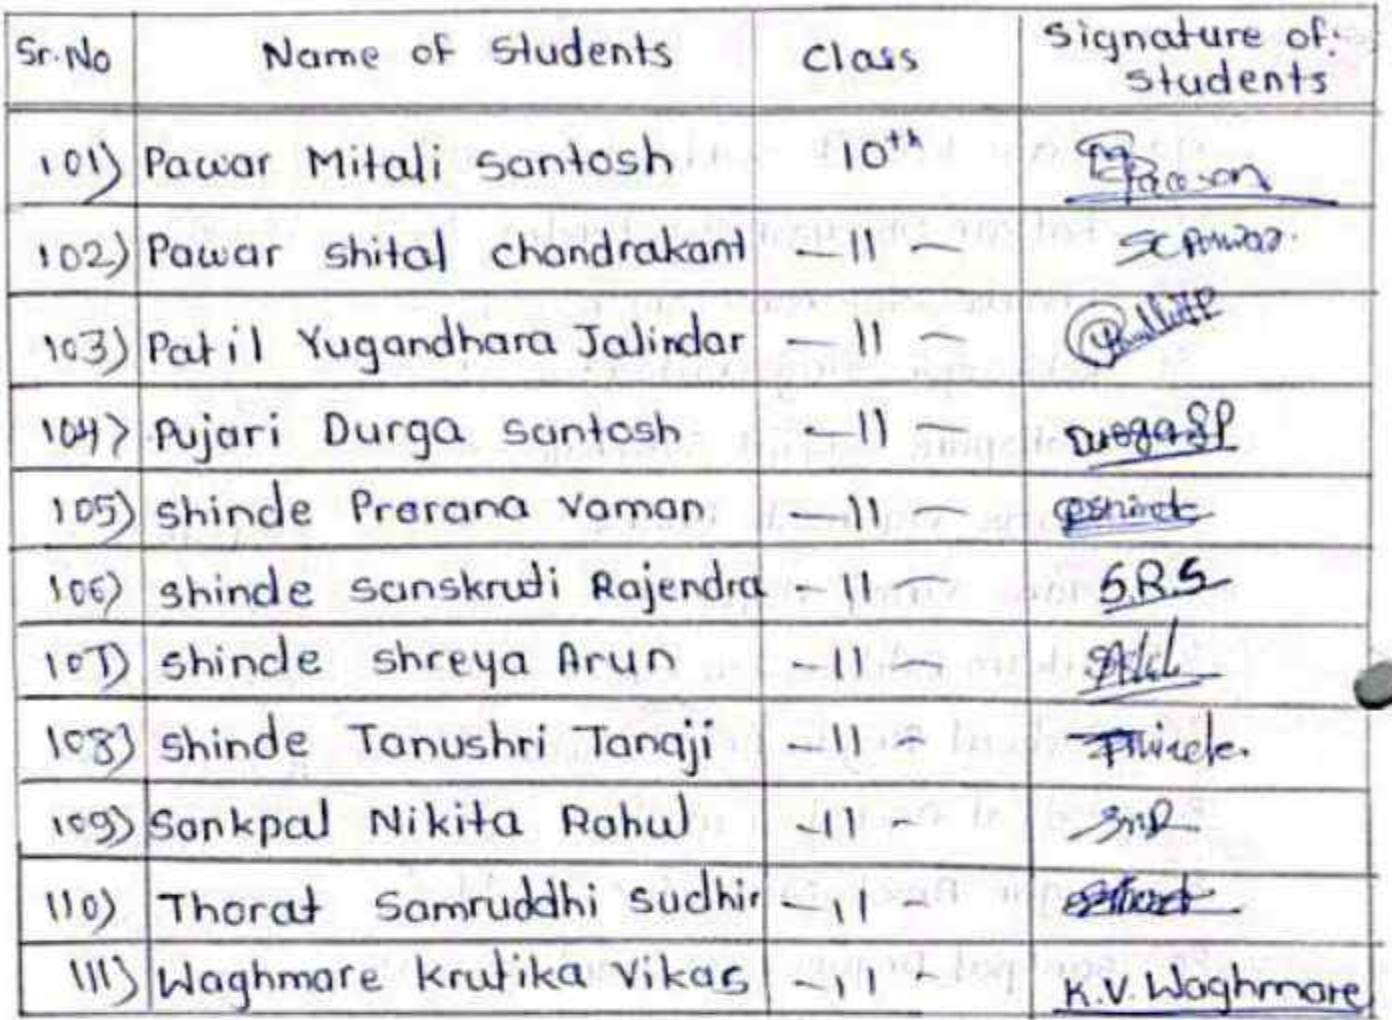 Sr.No Name of Students Class Signature of students
101) Pawar Mitali Santosh 10th
102) Pawar Shital Chandrakant –11– SCPawar.
103) Patil Yugandhara Jalindar –11–
104) Pujari Durga Santosh –11– DurgaSP
105) Shinde Prerana Vaman –11– PShinde
106) Shinde Sanskruti Rajendra –11– S.R.S
107) Shinde Shreya Arun –11–
108) Shinde Tanushri Tanaji –11–
109) Sankpal Nikita Rahul –11– SNR
110) Thorat Samruddhi Sudhir –11–
111) Waghmare Krutika Vikas –11– K.V. Waghmare